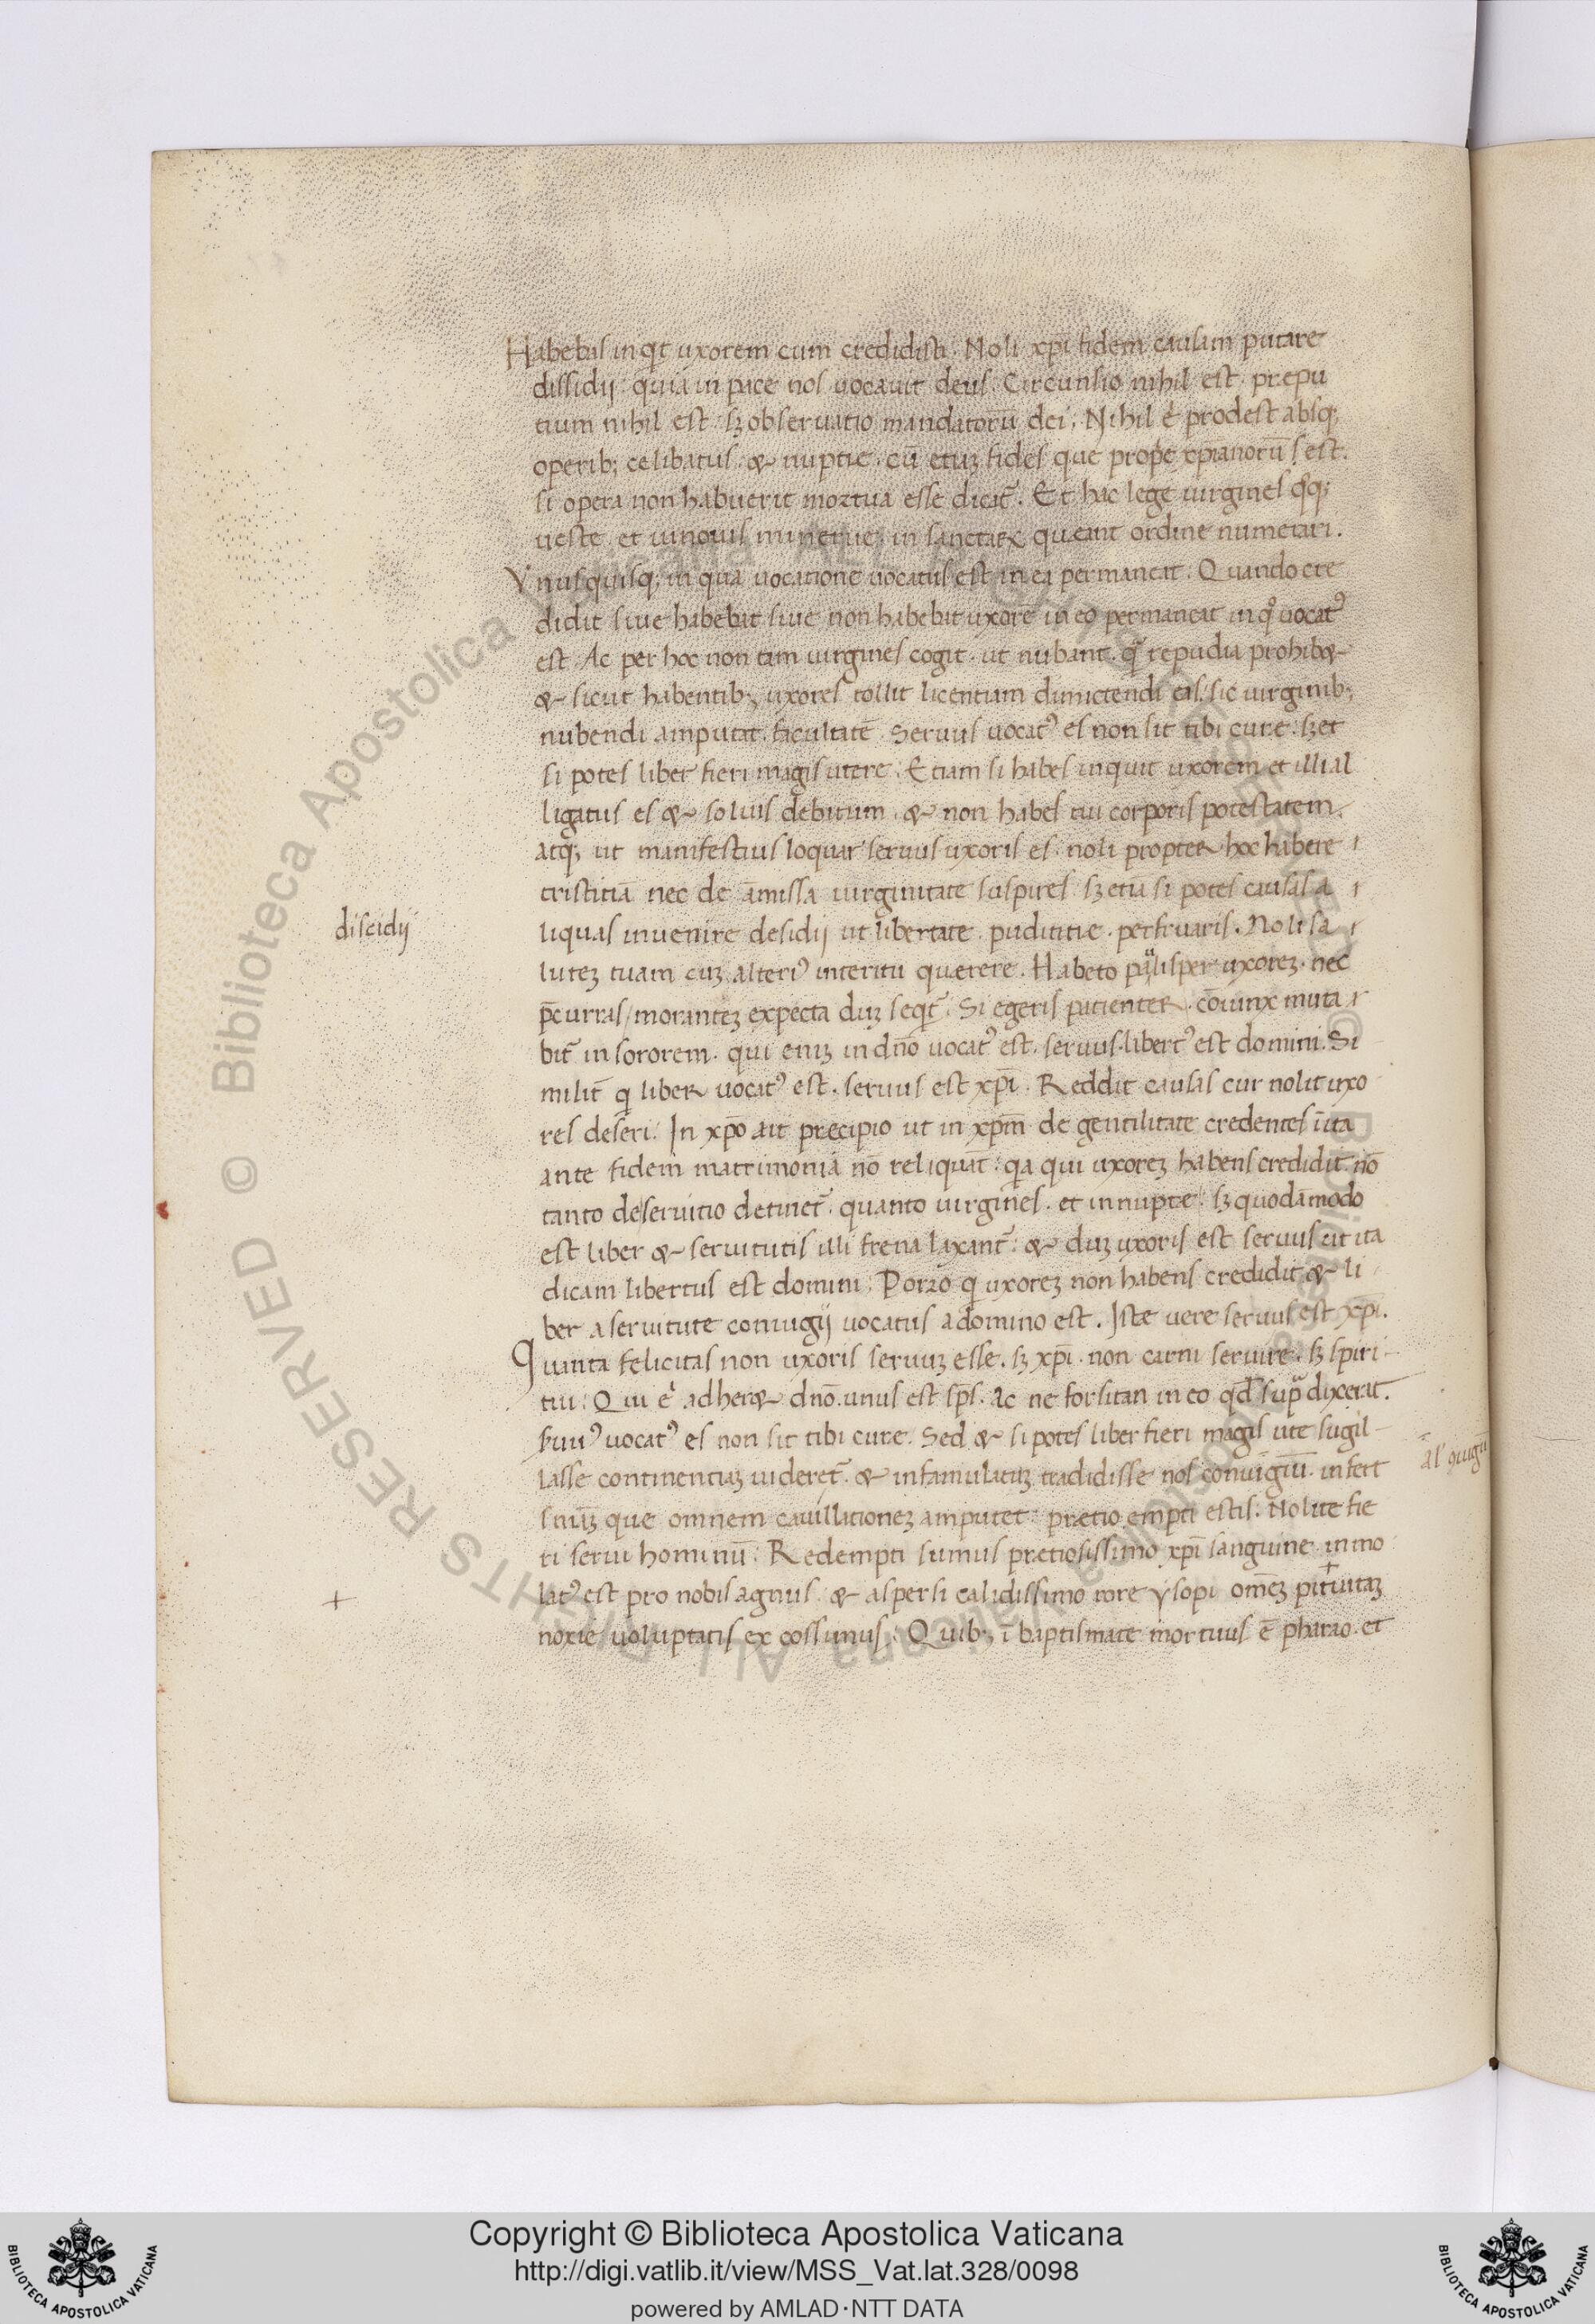 Habebas inqt uxorem cum credidisti. Noli xp̄i fidem causam putare
dissidij: quia in pace nos uocauit deus. Circunsio nihil est. prepu
tium nihil est. sȝ obseruatio mandatorū dei. Nihil .n. prodest absq;
operib; celibatus. & nuptie. cū etiaȝ fides que prope xp̄ianorū ē est.
si opera non habuerit mortua esse dicat̄. Et hac lege uirgines q̄q;
ueste. et uniouis minerue. in sanctarꝝ queant ordine numerari.
Vnusquisq; in qua uocatione uocatus est in ea permaneat. Quando cre
didit siue habebat siue non habebat uxorē in eo permaneat in qͦ uocatꝰ
est. Ac per hoc non tam uirgines cogit. ut nubant. qᷓ repudia prohib&
& sicut habentib; uxores tollit licentiam dimictendi eas. sic uirginib;
nubendi amputat facultatē. Seruus uocatꝰ es non sit tibi cure. sȝ et
si potes liber fieri magis utere. Etiam si habes inquit uxorem et illi al
ligatus es & soluis debitum. & non habes tui corporis potestatem.
atq; ut manifestius loquar seruus uxoris es. noli propter hoc habere
tristitiā nec de āmissa uirginitate suspires. sȝ etiā si potes causas a
discidij
liquas inuenire desidij ut libertate. pudititie. perfruaris. Noli sa
luteȝ tuam cuȝ alteriꝰ interitu querere. Habeto paulisper uxoreȝ. nec
p̄curras / morantēȝ expecta duȝ seqt̄. Si egeris patienter. cōiunx muta
bit̄ in sororem. qui eniȝ in dn̄o uocatꝰ est. seruus. libertꝰ est domini. Si
milit̄ q liber uocatꝰ est. seruus est xp̄i. Reddit causas cur nolit uxo
res deseri. In xp̄o ait precipio ut in xp̄m de gentilitate credentes iūta
ante fidem matrimonia nō reliquāt: qa qui uxoreȝ habens credidit. nō
tanto dei seruitio detinet̄. quanto uirgines. et innupte. sȝ quodāmodo
est liber & seruitutis illi frena laxant̄. & duȝ uxoris est seruus ut ita
dicam libertus est domini. Porro q uxoreȝ non habens credidit & li
ber a seruitute coniugij uocatus a domino est. Iste uere seruus est xp̄i.
Quanta felicitas non uxoris seruuȝ esse. sȝ xp̄i. non carni seruire. sȝ spiri
tui. Qui .n. adher& dn̄o. unus est sp̄s. Ac ne forsitan in eo qd̄ supᷓ dixerat.
seruꝰ uocatꝰ es non sit tibi cure. Sed & si potes liber fieri magis utē sugil
lasse continentiaȝ uideret̄. & in famulatuȝ tradidisse nos coniugiū. infert
al' 9iugū
sniaȝ que omnem cauillationeȝ amputet. pretio empti estis. Nolite fie
ri serui hominū. Redempti sumus pretiosissimo xp̄i sanguine. inmo
latꝰ est pro nobis agnus. & aspersi calidissimo rore ysopi omēȝ pituitaȝ
noxie uoluptatis excossimus. Quib; ī baptismate mortuus ē pharao. et
Copyright © Biblioteca Apostolica Vaticana
http://digi.vatlib.it/view/MSS_Vat.lat.328/0098
powered by AMLAD·NTT DATA